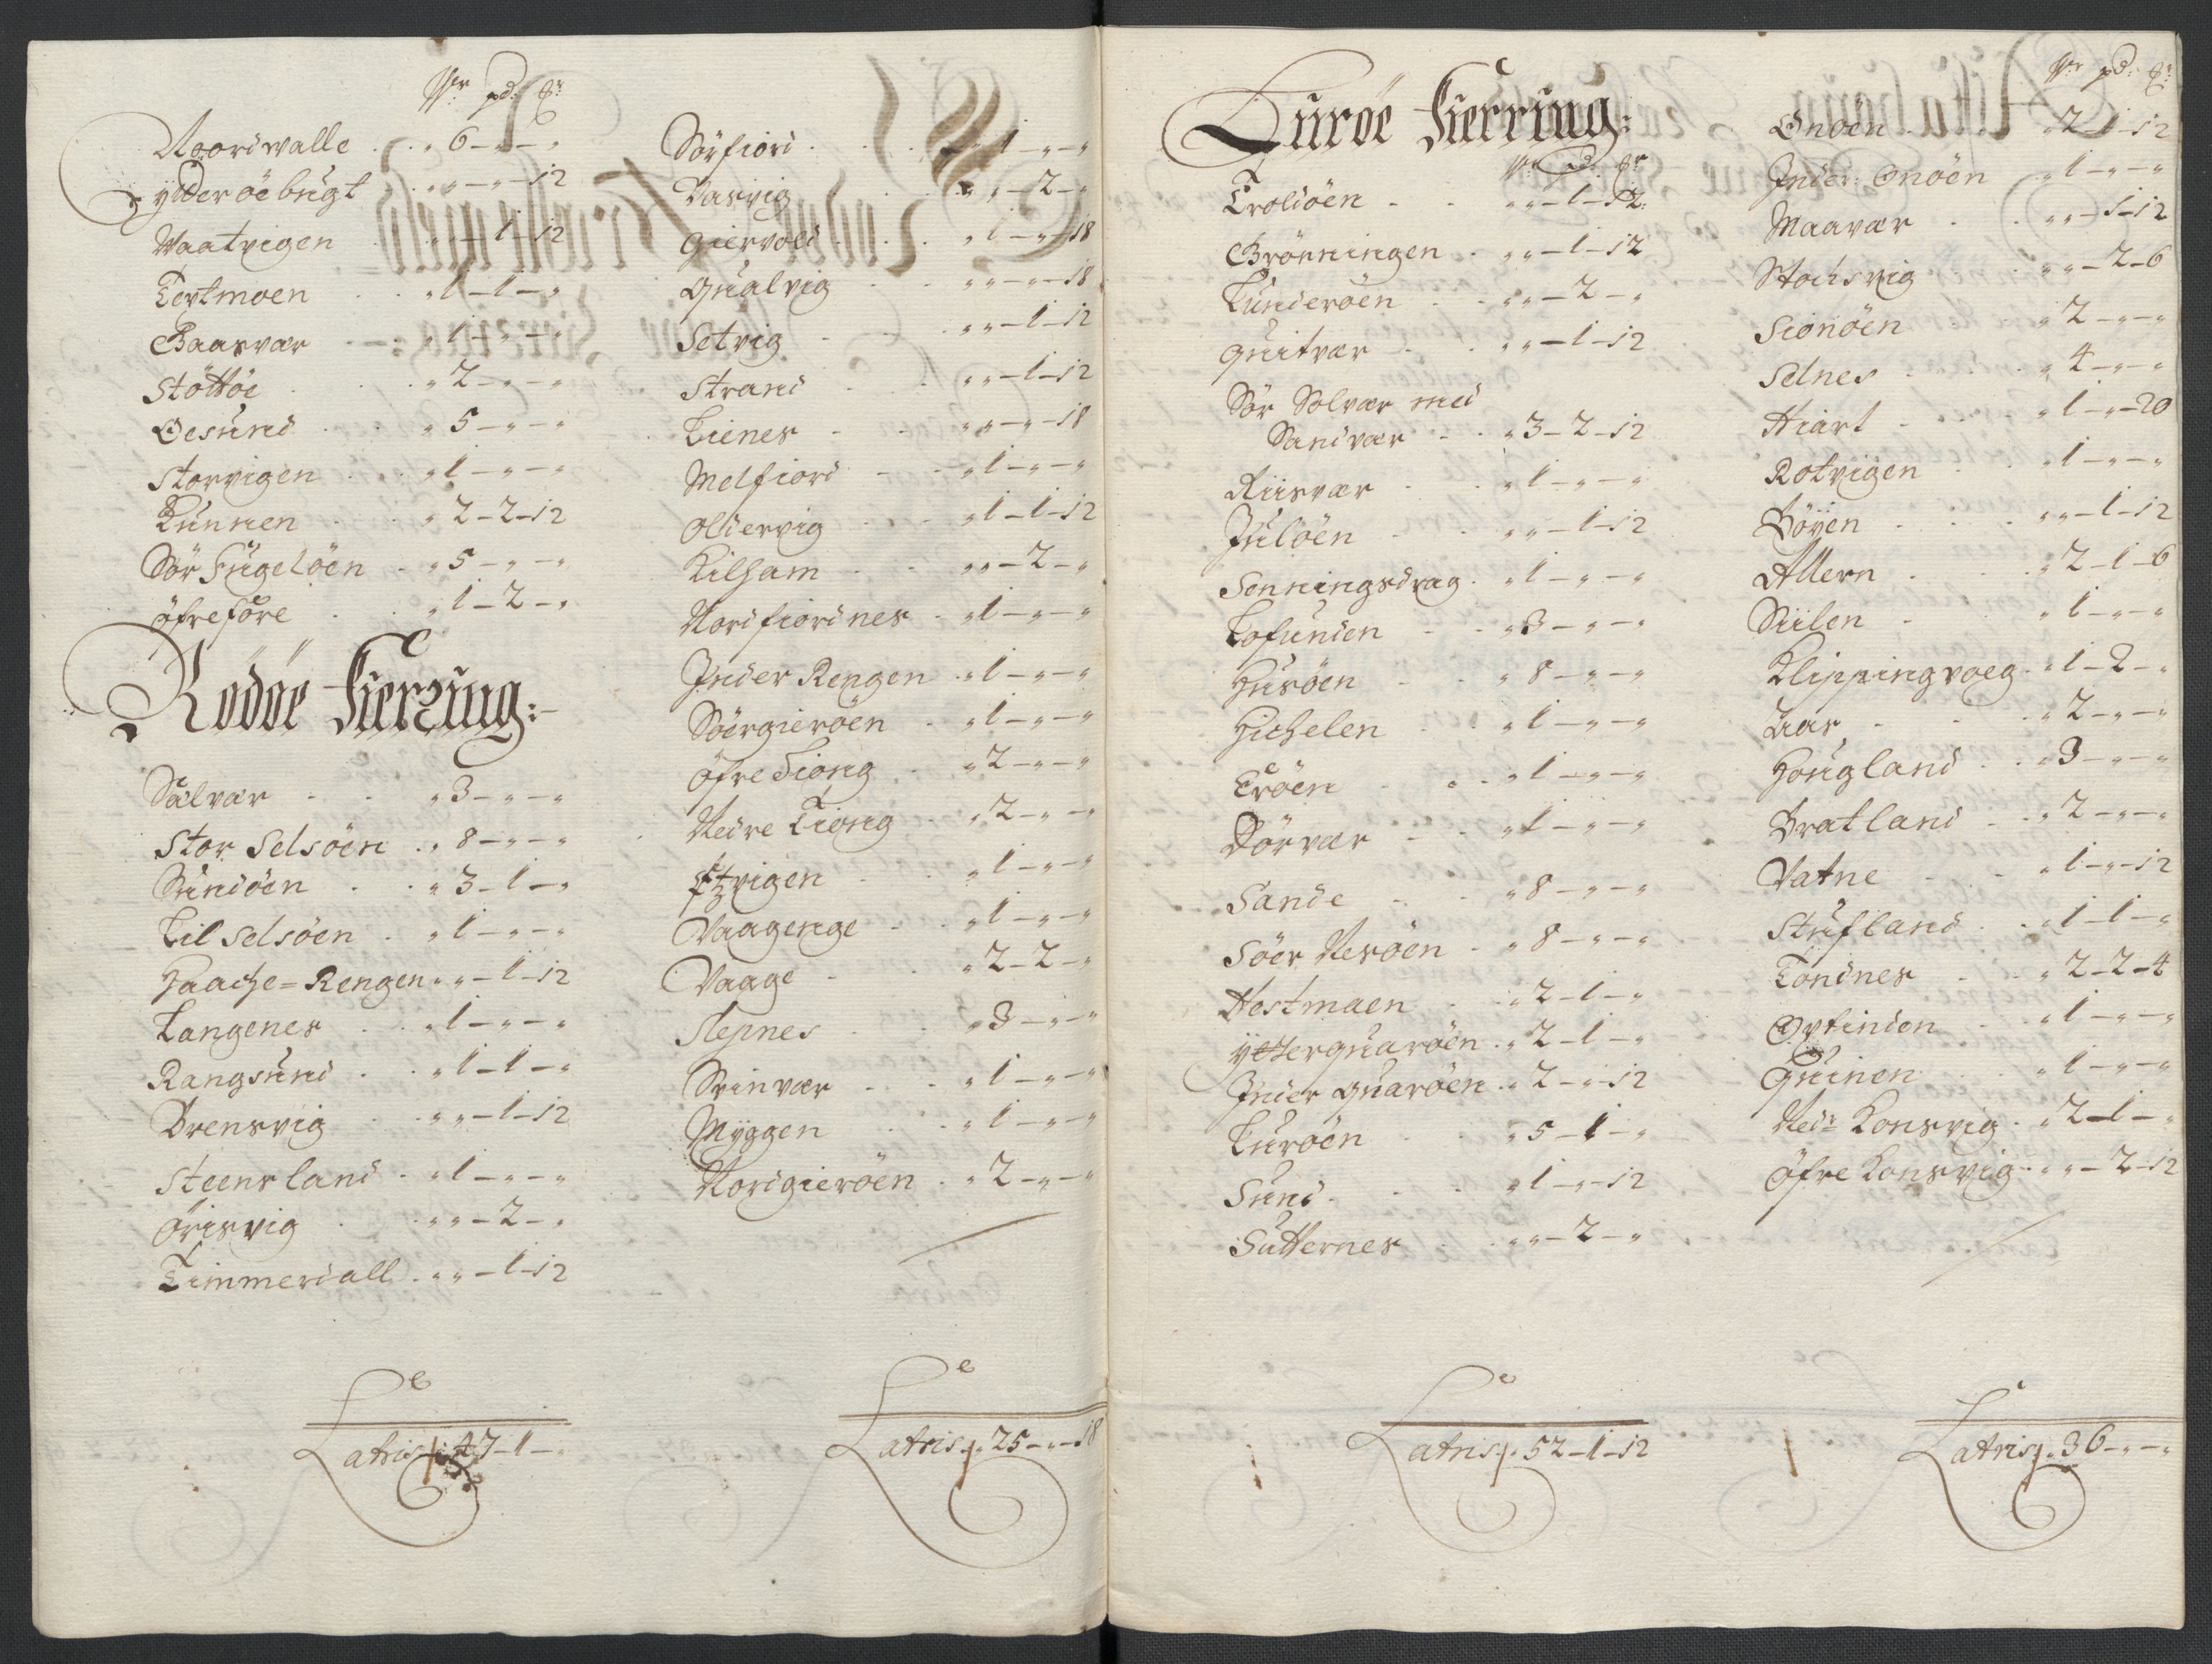 Vr pd: ꝸr
Noordwalle . . „ 6 – „ – „
ydder öe bugt . „ „ – „ – 12
Waatvigen . . „ „ – 1 – 12
Tertmoen . . „ 1 – 1 – „
Gaasvær . – „ 1 – „ – „
Støttöe . . . „ 2 – „ – „
Oesund . . „ 5 – „ – „
Storvigen . . „ 1 – „ – „
Kunnen . . „ 2 – 2 – 12
Sör Fugelöen . „ 5 – „ – „
öfrefore . . „ 1 – 2 – „
Rödöe Fierring:
Sælvær . . „ 3 – „ – „
Stor Selsöen . „ 8 – „ – „
Sundöen . . „ 3 – 1 – „
Lil Selsöen . „ 1 – „ – „
Haache = Rengen „ „ – 1 – 12
Langenes . . „ 1 – „ – „
Rangsund . . „ 1 – 1 – „
Brensvig . . „ „ – 1 – 12
Steensland . „ 1 – „ – „
örisvig . . „ „ – 2 – „
Timmerdall . „ „ – 1 – 12
Latris „ 47 – 1 – „
Sörfiord . . . „ 1 – „ – „
Vasvig . . „ „ – 2 – „
Giervold . . . „ 1 – „ – 18
Qualvig . . „ „ – „ – 18
Setvig . . „ „ – 1 – 12
Strand . . „ „ – 1 – 12
Lienes . . „ „ – „ – 18
Melfiord . . „ 1 – „ – „
Oldervig . . „ 1 – 1 – 12
Kilham . . „ „ – 2 – „
Nordfiordnes . „ 1 – „ – „
Inder Rengen . „ 1 – „ – „
Söergieröen . „ 1 – „ – „
Öfre Tiong . „ 2 – „ – „
Nedre Tiong . „ 2 – „ – „
Etzvigen . . „ 1 – „ – „
Vaagenge . . „ 1 – „ – „
Vaage . . „ 2 – 2 – „
Slepnes . . „ 3 – „ – „
Svinvær . . „ 1 – „ – „
Myggen . . „ 1 – „ – „
Nordgieröen . „ 2 – „ – „
Latris „ 25 – „ – 18
Luröe Fierring:
Vr pd: ꝸr
Troldöen . . „ „ – 1 – 12
Grönningen . „ „ – 1 – 12
Lunderöen . . „ „ – 2 – „
Quitvær . . „ „ – 1 – 12
Sör Solvær med
Sandvær . . „ 3 – 2 – 12
Riisvær . . „ 1 – „ – „
Juløen . . „ „ – 1 – 12
Senningsdrag . „ 1 – „ – „
Lofunden . . „ 3 – „ – „
Husöen . . „ 8 – „ – „
Hichelen . . „ 1 – „ – „
Eröen . . „ 1 – „ – „
Dörvær . . „ 1 – „ – „
Sande . . „ 8 – „ – „
Söer Nesöen . „ 8 – „ – „
Hestmaen . „ 2 – 1 – „
ytterquaröen . „ 2 – 1 – „
Inder Quaröen . „ 2 – „ – 12
Luröen . . „ 5 – 1 – „
Sund . . „ 1 – „ – 12
Sutternes . . „ „ – 2 – „
Latris „ 52 – 1 – 12
Vr pd: ꝸr
Onöen . . „ 2 – 1 – 12
Inder Onöen . „ 1 – „ – „
Maavær . . „ „ – 1 – 12
Stochsvig . . „ „ – 2 – 6
Sionöen . . „ 2 – „ – „
Selnes . . „ 4 – „ – „
Hiart . . „ 1 – „ – 20
Rotvigen . . „ 1 – „ – „
Böyen . . „ „ – 1 – 12
Allern . . „ 2 – 1 – 6
Siilen . . „ 1 – „ – „
Klippingvoeg . „ 1 – 2 – „
Aas . . „ 2 – „ – „
Hougland . . „ 3 – „ – „
Bratland . . „ 2 – „ – „
Vatne . . „ 1 – „ – 12
Stufland . . „ 1 – 1 – „
Tondnes . . „ 2 – 2 – 4
Ortinden . . „ 1 – „ – „
Quinen . . „ 1 – „ – „
Ned: Konsvig . „ 2 – 1 – „
Öfre Konsvig . „ „ – 2 – 12
Latris „ 36 – „ – „